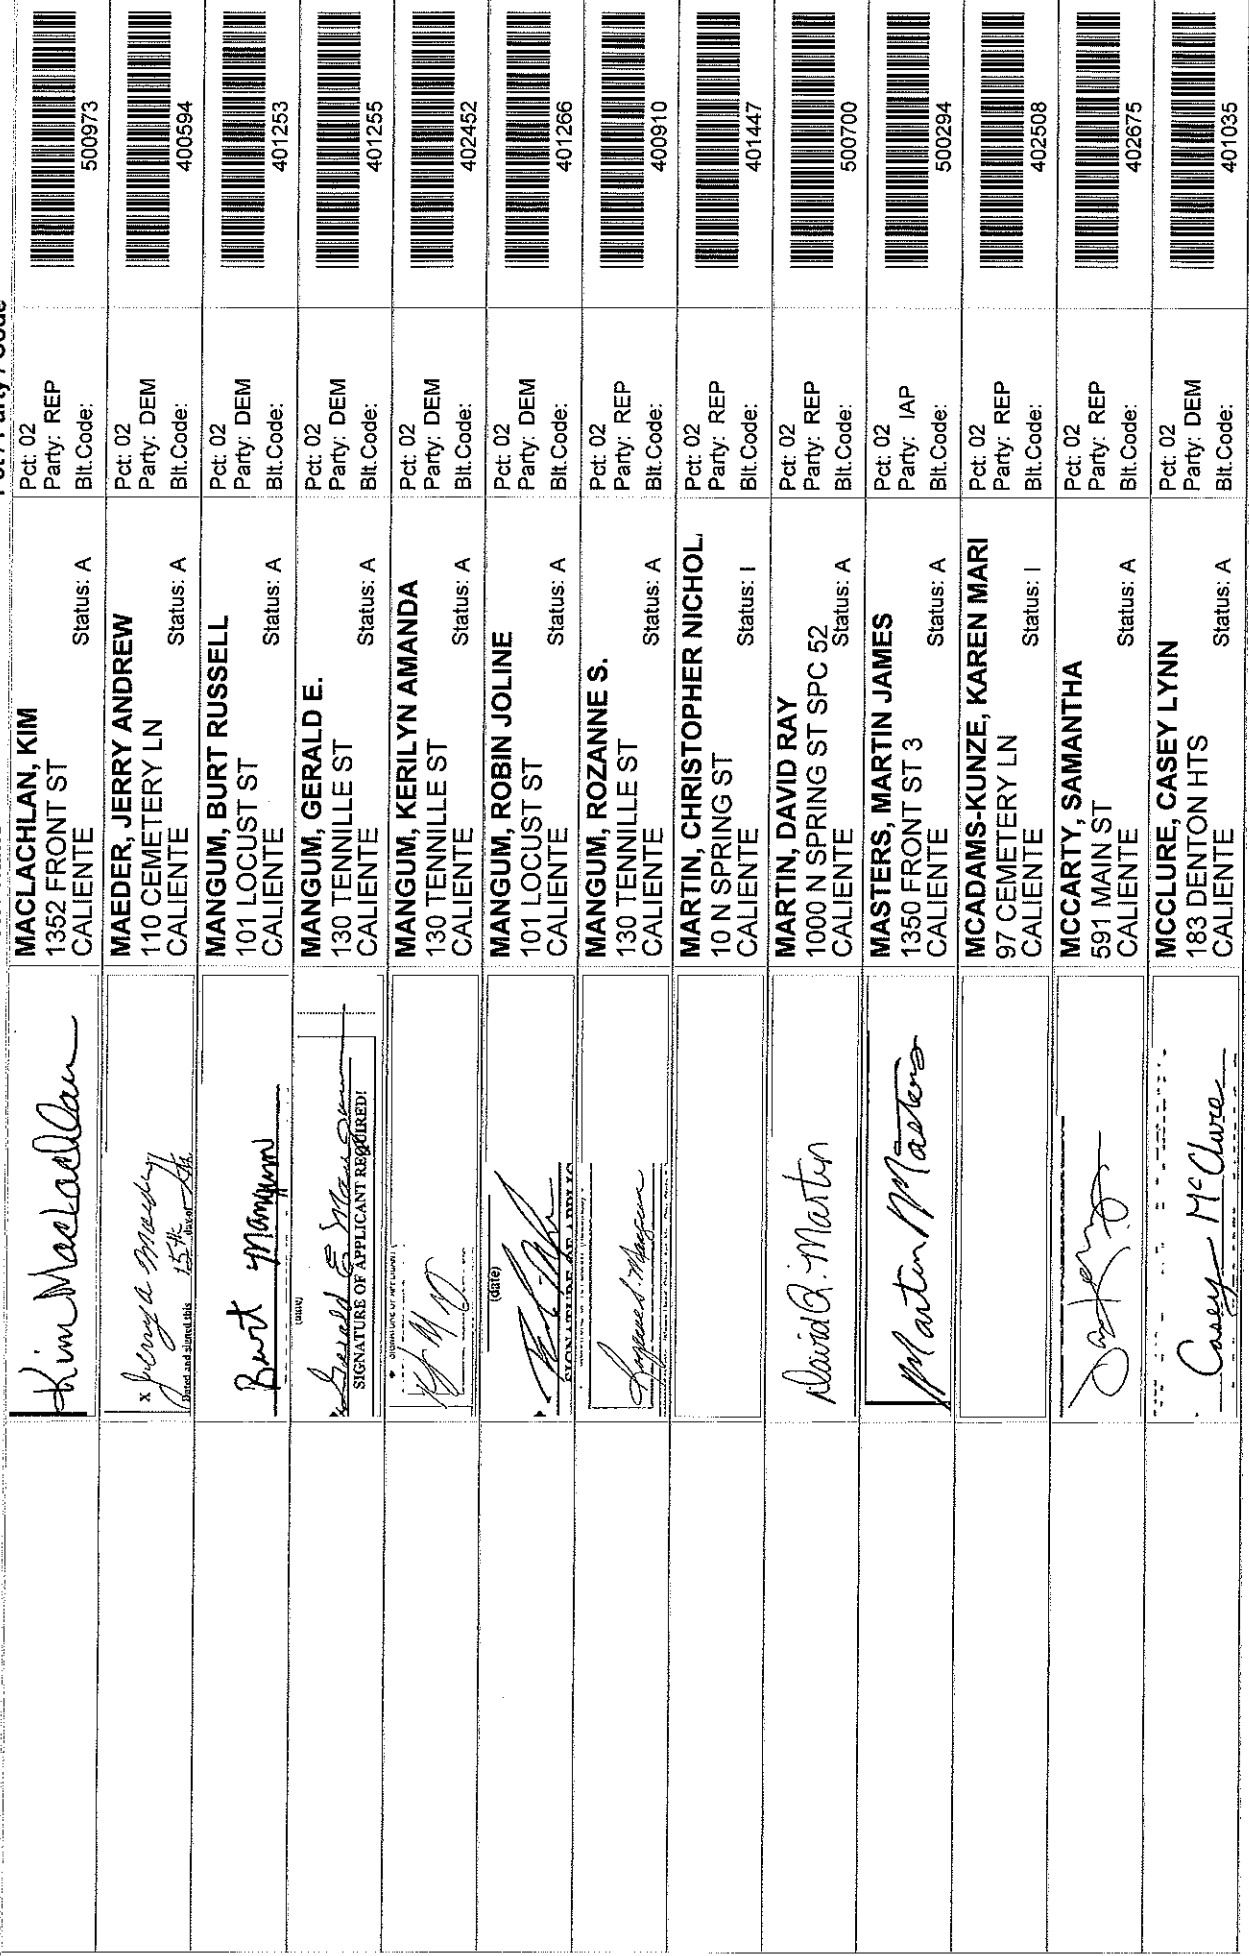 Kim Maclachlan
MACLACHLAN, KIM
1352 FRONT ST
CALIENTE
Status: A
Pct: 02
Party: REP
Blt.Code:
500973
x
Dated and signed this 15th day of
MAEDER, JERRY ANDREW
110 CEMETERY LN
CALIENTE
Status: A
Pct: 02
Party: DEM
Blt.Code:
400594
Burt Mangum
MANGUM, BURT RUSSELL
101 LOCUST ST
CALIENTE
Status: A
Pct: 02
Party: DEM
Blt.Code:
401253
Gerald E Mangum
SIGNATURE OF APPLICANT REQUIRED!
MANGUM, GERALD E.
130 TENNILLE ST
CALIENTE
Status: A
Pct: 02
Party: DEM
Blt.Code:
401255
SIGNATURE OF APPLICANT
MANGUM, KERILYN AMANDA
130 TENNILLE ST
CALIENTE
Status: A
Pct: 02
Party: DEM
Blt.Code:
402452
(date)
MANGUM, ROBIN JOLINE
101 LOCUST ST
CALIENTE
Status: A
Pct: 02
Party: DEM
Blt.Code:
401266
Rozanne S. Mangum
MANGUM, ROZANNE S.
130 TENNILLE ST
CALIENTE
Status: A
Pct: 02
Party: REP
Blt.Code:
400910
MARTIN, CHRISTOPHER NICHOL
10 N SPRING ST
CALIENTE
Status: I
Pct: 02
Party: REP
Blt.Code:
401447
David R. Martin
MARTIN, DAVID RAY
1000 N SPRING ST SPC 52
CALIENTE
Status: A
Pct: 02
Party: REP
Blt.Code:
500700
Martin Masters
MASTERS, MARTIN JAMES
1350 FRONT ST 3
CALIENTE
Status: A
Pct: 02
Party: IAP
Blt.Code:
500294
MCADAMS-KUNZE, KAREN MARI
97 CEMETERY LN
CALIENTE
Status: I
Pct: 02
Party: REP
Blt.Code:
402508
MCCARTY, SAMANTHA
591 MAIN ST
CALIENTE
Status: A
Pct: 02
Party: REP
Blt.Code:
402675
Casey McClure
MCCLURE, CASEY LYNN
183 DENTON HTS
CALIENTE
Status: A
Pct: 02
Party: DEM
Blt.Code:
401035